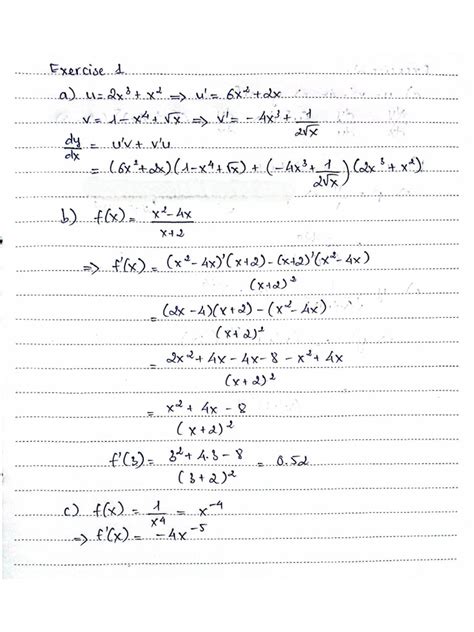 Exercise 1
a) u = 2x³ + x² => u' = 6x² + 2x
v = 1 - x⁴ + √x => v' = -4x³ + 1/(2√x)
dy/dx = u'v + v'u
= (6x² + 2x)(1 - x⁴ + √x) + (-4x³ + 1/(2√x))(2x³ + x²)
b) f(x) = (x² - 4x)/(x + 2)
=> f'(x) = ((x² - 4x)'(x + 2) - (x + 2)'(x² - 4x))/(x + 2)²
= ((2x - 4)(x + 2) - (x² - 4x))/(x + 2)²
= (2x² + 4x - 4x - 8 - x² + 4x)/(x + 2)²
= (x² + 4x - 8)/(x + 2)²
f'(3) = (3² + 4.3 - 8)/(3 + 2)² = 0.52
c) f(x) = 1/x⁴ = x⁻⁴
=> f'(x) = -4x⁻⁵